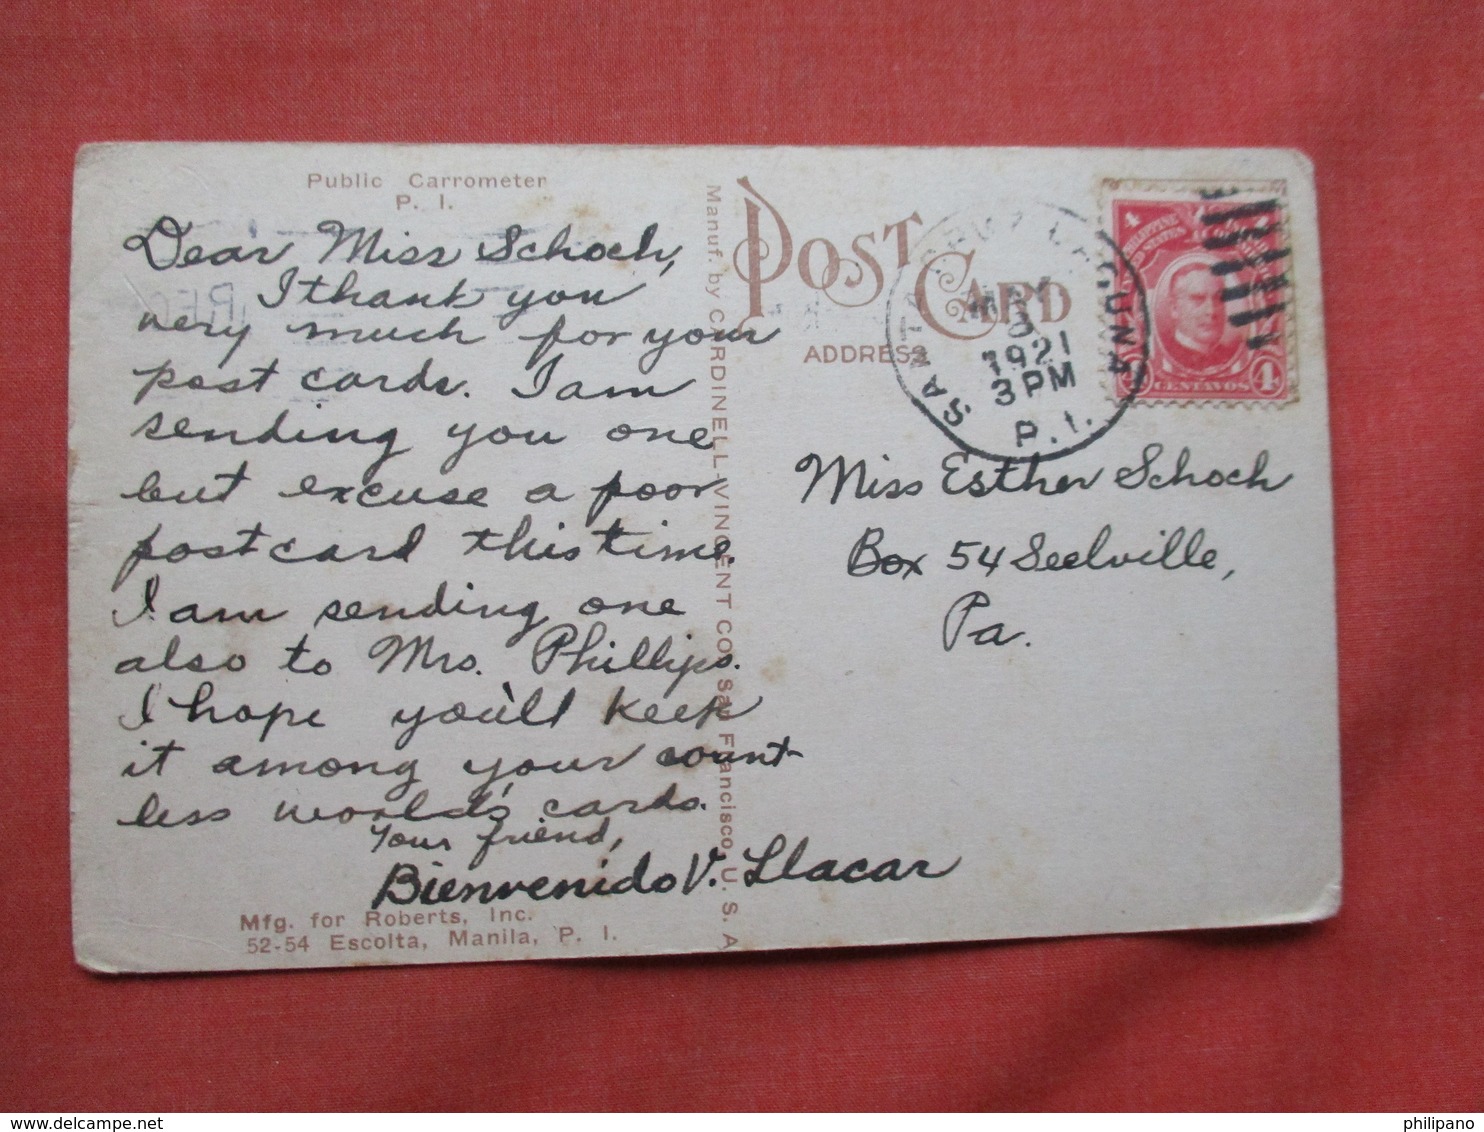 Public Carrometer
P. I.
Dear Miss Schoch,
I thank you
very much for your
post cards. I am
sending you one
but excuse a poor
post card this time.
I am sending one
also to Mrs. Phillips.
I hope you'll keep
it among your count-
less world's cards.
Your friend,
Bienvenido V. Llacar
Mfg. for Roberts, Inc.
52-54 Escolta, Manila, P. I.
Manuf. by CARDINELL-VINCENT CO., San Francisco, U. S. A
POST CARD
ADDRESS
SANTA CRUZ LAGUNA
MAY
1921
3 PM
P. I.
4 4
PHILIPPINE
CENTAVOS
Miss Esther Schoch
Box 54 Seelville,
Pa.
REC
philipano
delcampe.net